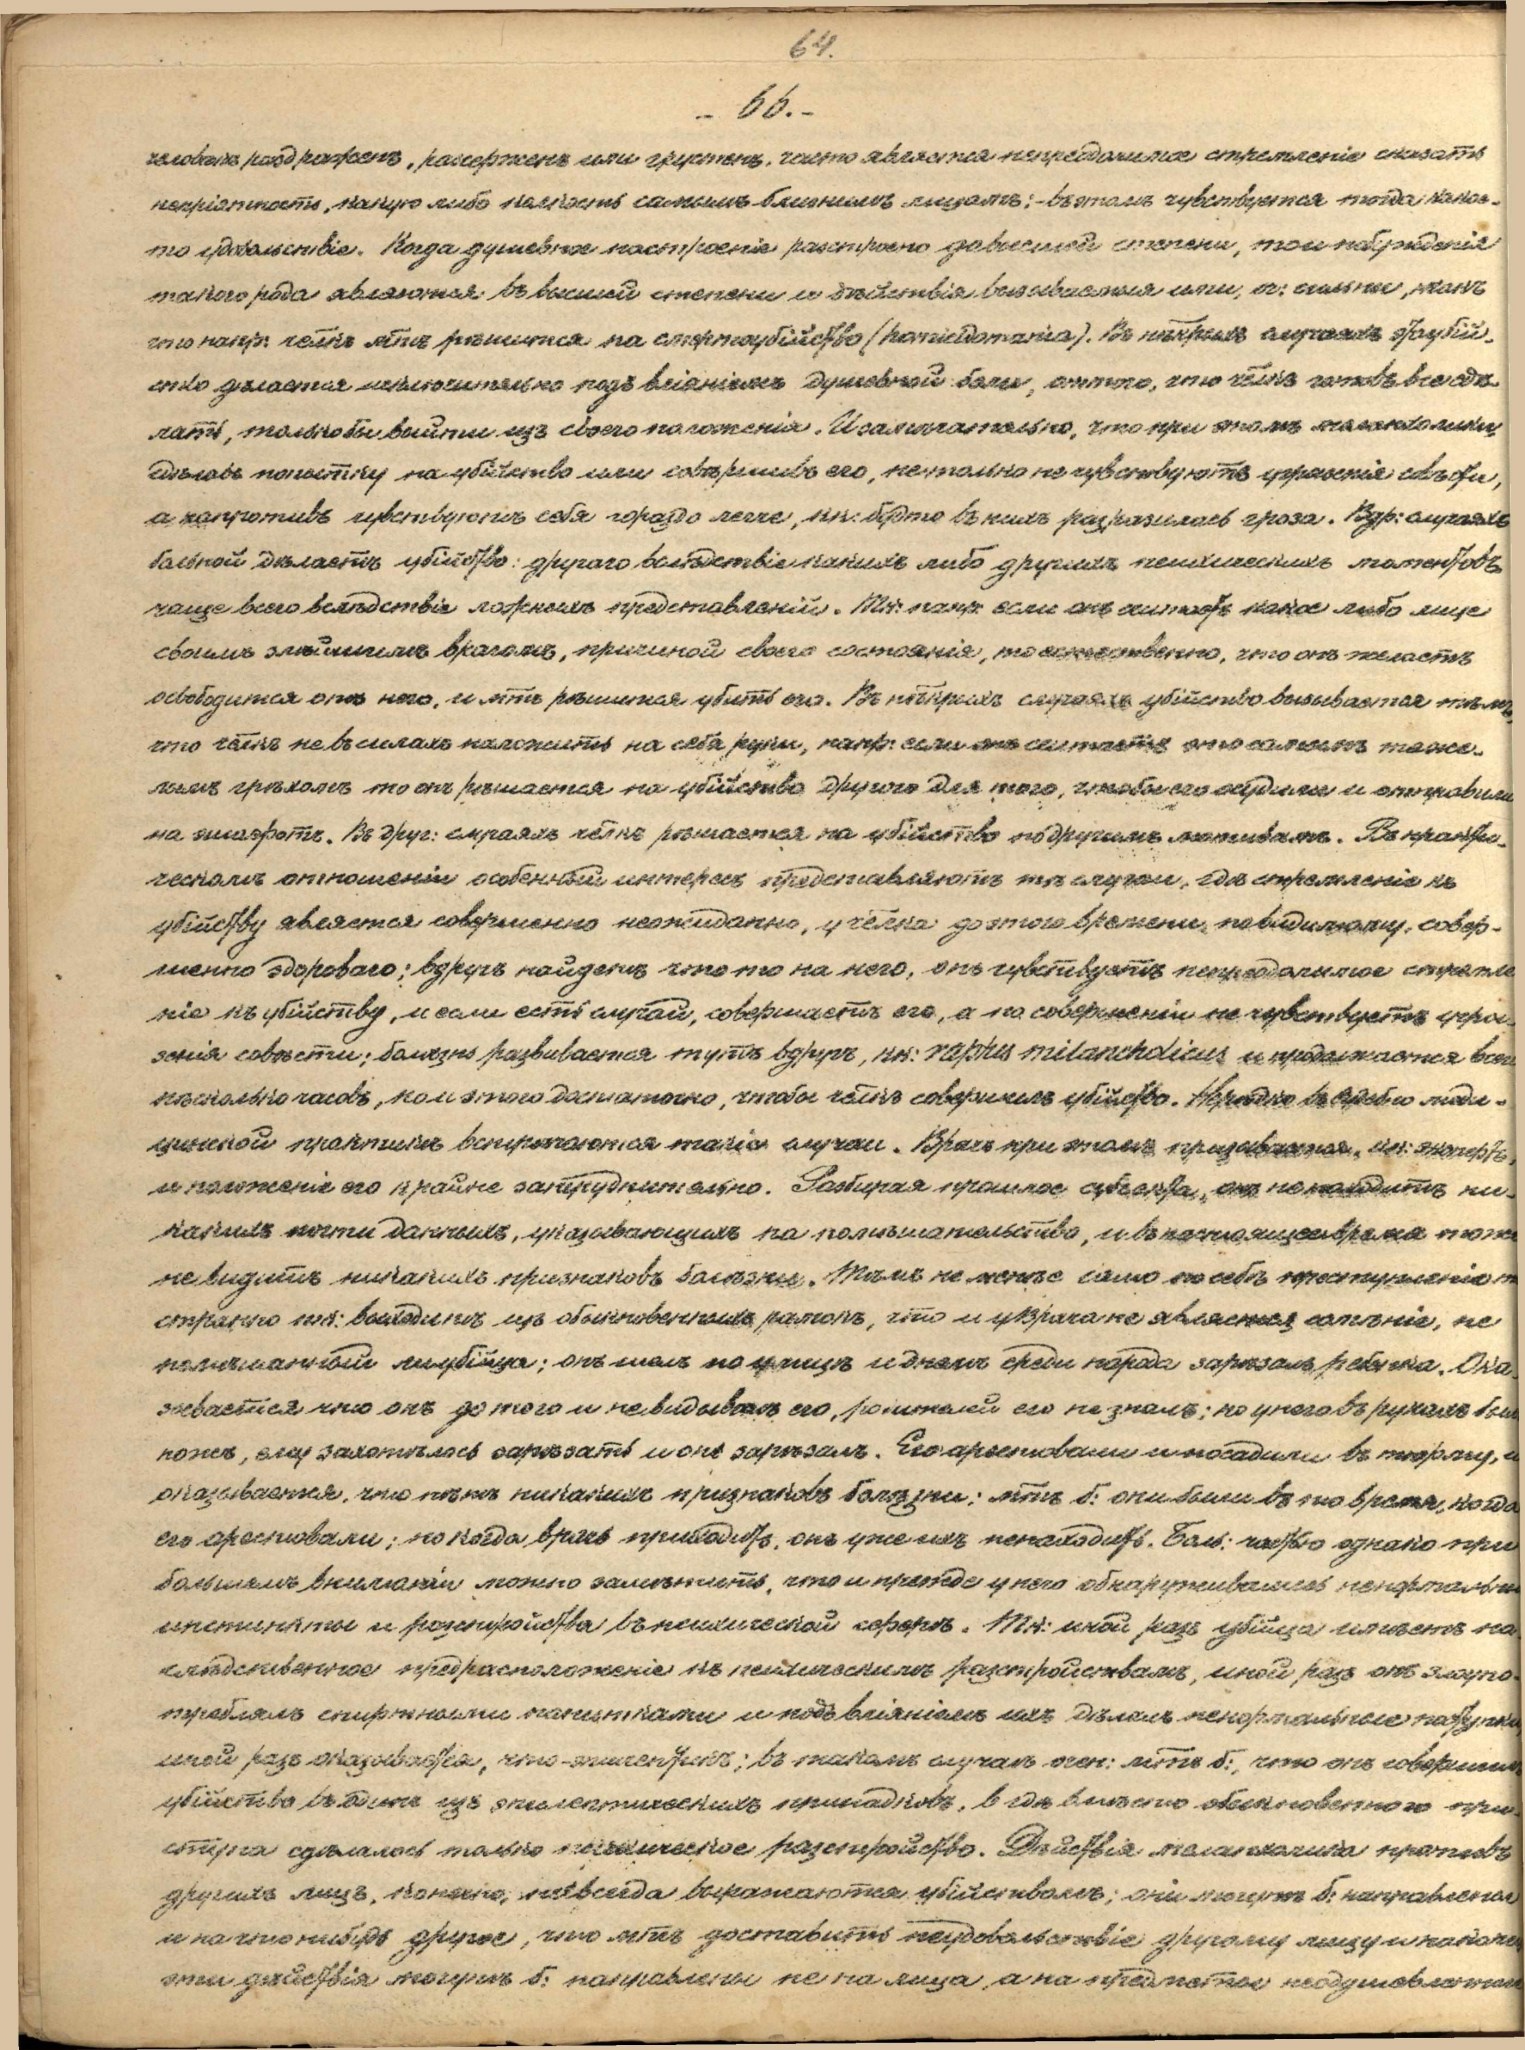 64.
- 66. -
человѣкъ раздраженъ, разсерженъ или грустенъ, часто является непреодолимое стремленіе сказать
непріятность, какую либо колкость самымъ близкимъ лицамъ; - въ этомъ чувствуется тогда какое-
то удовольствіе. Когда душевное настроеніе разстроено до высшей степени, то и побужденія
такого рода являются въ высшей степени и дѣйствія вызываемыя ими, о: сильны, такъ
что напр: челкъ мтъ рѣшиться на смертоубійство (homicidomania). Въ нѣкрыхъ случаяхъ это убій-
ство дѣлается исключительно подъ вліяніемъ душевной боли, оттого, что челкъ готовъ все сдѣ-
лать, только бы выйти изъ своего положенія. И замѣчательно, что при этомъ меланхолики,
сдѣлавъ попытку на убійство или совершивъ его, не только не чувствуютъ угрызенія совѣсти,
а напротивъ чувствуютъ себя гораздо легче, кк: будто въ нихъ разразилась гроза. В др: случаяхъ
больной дѣлаетъ убійство другаго вслѣдствіе какихъ либо другихъ психическихъ моментовъ
чаще всего вслѣдствіе ложныхъ представленій. Тк: напр: если онъ считаетъ какое либо лице
своимъ злѣйшимъ врагомъ, причиной своего состоянія, то естественно, что онъ желаетъ
освободится отъ него, и мтъ рѣшиться убить его. Въ нѣкрыхъ случаяхъ убійство вызывается тѣмъ,
что челкъ не въ силахъ наложить на себя руки, напр: если онъ считаетъ это самымъ тяже-
лымъ грѣхомъ то онъ рѣшается на убійство другого для того, чтобы его осудили и отправили
на эшафотъ. Въ друг: случаяхъ челкъ рѣшается на убійство по другимъ мотивамъ. Въ практи-
ческомъ отношеніи особенный интересъ представляютъ тѣ случаи, гдѣ стремленіе къ
убійству является совершенно неожиданно, у челка до этого времени, повидимому, совер-
шенно здороваго; вдругъ найдетъ что то на него, онъ чувствуетъ непреодолимое стремле
ніе къ убійству, и если есть случай, совершаетъ его, а по совершеніи не чувствуетъ угры-
зенія совѣсти; болѣзнь развивается тутъ вдругъ, кк: raptus milancholicus и продолжается всего
нѣсколько часовъ, но и этого достаточно, чтобы челкъ совершилъ убійство. Нерѣдко въ судебно меди-
цинской практикѣ встрѣчаются такіе случаи. Врачъ при этомъ призывается, кк: экспертъ,
и положеніе его крайне затруднительно. Разбирая прошлое субъекта, онъ не находитъ ни-
какихъ почти данныхъ, указывающихъ на помѣшательство, и въ настоящее время тоже
не видитъ никакихъ признаковъ болѣзни. Тѣмъ не менѣе само по себѣ преступленіе
странно тк: выходитъ изъ обыкновенныхъ рамокъ, что и у врача не является сомнѣніе, не
помѣшанный ли убійца; онъ шелъ по улицѣ и днемъ среди народа зарѣзалъ ребенка. Ока-
зывается что онъ до того и не видывалъ его, родителей его не зналъ; но у него въ рукахъ былъ
ножъ, ему захотѣлось зарѣзать и онъ зарѣзалъ. Его арестовали и посадили въ тюрьму, и
оказывается, что нѣтъ никакихъ признаковъ болѣзни; мтъ б: они были въ то время, когда
его арестовали; но когда врачъ приходитъ, онъ уже ихъ не находитъ. Боль: частью однако при
большемъ вниманіи можно замѣтить, что и прежде у него обнаруживались ненормальные
инстинкты и разстройства въ психической сферѣ. Тк: иной разъ убійца имѣетъ на-
слѣдственное предрасположеніе къ психическимъ разстройствамъ, иной разъ онъ злоупо-
треблялъ спиртными напитками и подъ вліяніемъ ихъ дѣлалъ ненормальные поступки
иной разъ оказывается, что - эпилептикъ; въ такомъ случаѣ очен: мтъ б:, что онъ совершилъ
убійство въ одинъ изъ эпилептическихъ припадковъ, в гдѣ вмѣсто обыкновеннаго при-
ступа сдѣлалось только психическое разстройство. Дѣйствія меланхолика противъ
другихъ лицъ, конечно, не всегда выражаются убійствомъ; они могутъ б: направлены
и на что нибудь другое, что мтъ доставить неудовольствіе другому лицу и наконецъ
эти дѣйствія могутъ б: направлены не на лица, а на предметы неодушевленные